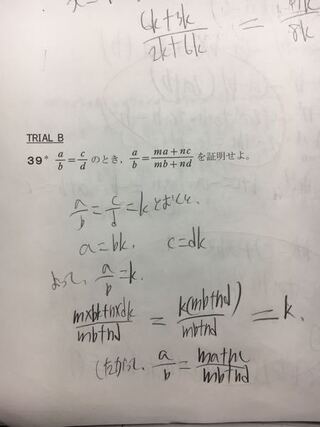 6k+3k / 2k+6k =
TRIAL B
39* a/b = c/d のとき, a/b = ma+nc / mb+nd を証明せよ.
a/b = c/d = k とおくと、
a=bk, c=dk
よって、a/b=k.
m×bk+n×dk / mb+nd = k(mb+nd) / mb+nd = k.
したがって、a/b = ma+nc / mb+nd